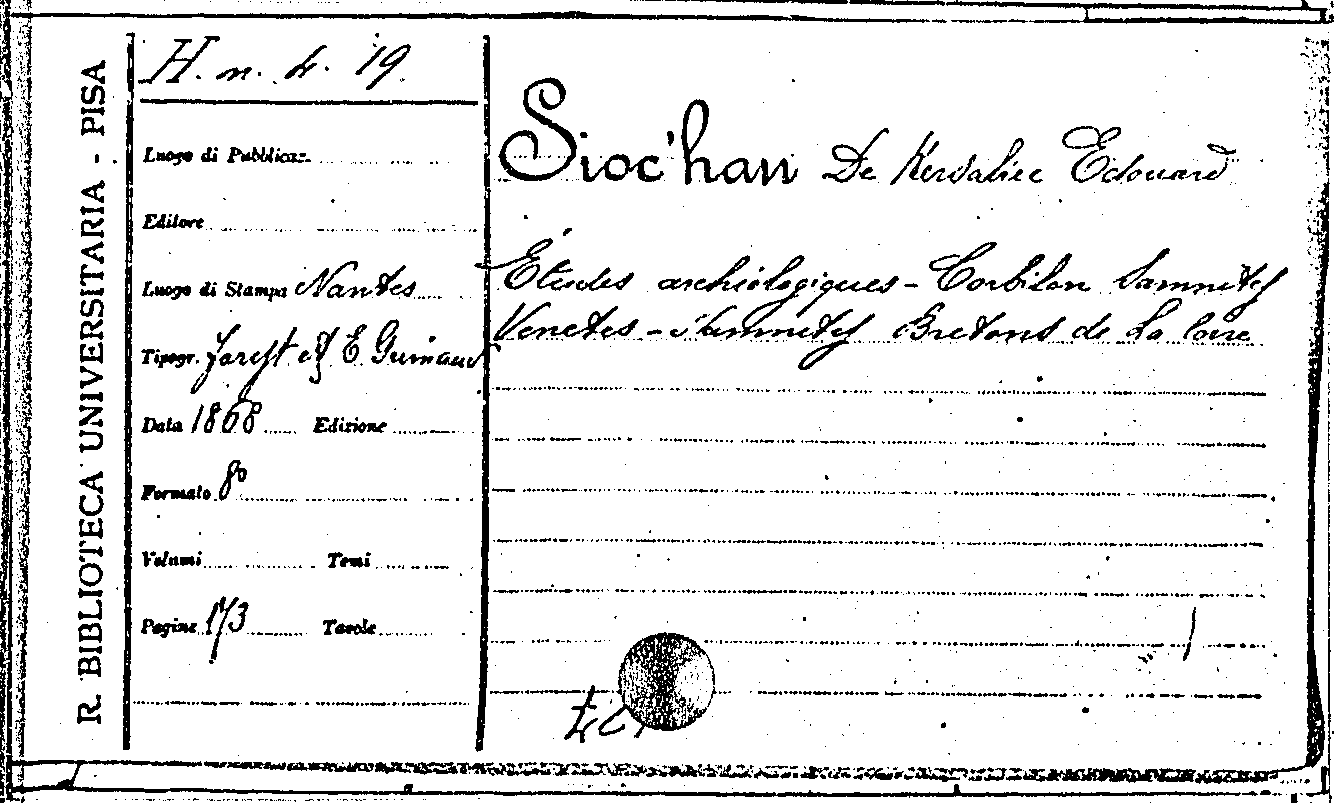 R. BIBLIOTECA UNIVERSITARIA - PISA
H. n. 4. 19.
Luogo di Pubblicaz.
Editore
Luogo di Stampa Nantes
Tipogr. Forest et E Grimaud
Data 1868 Edizione
Formato 8º
Volumi Tomi
Pagine 173 Tavole
Sioc'han De Kersabiec Edouard
Études archéologiques - Corbilon Samnites
Venetes - Namnetes Bretons de La Loire